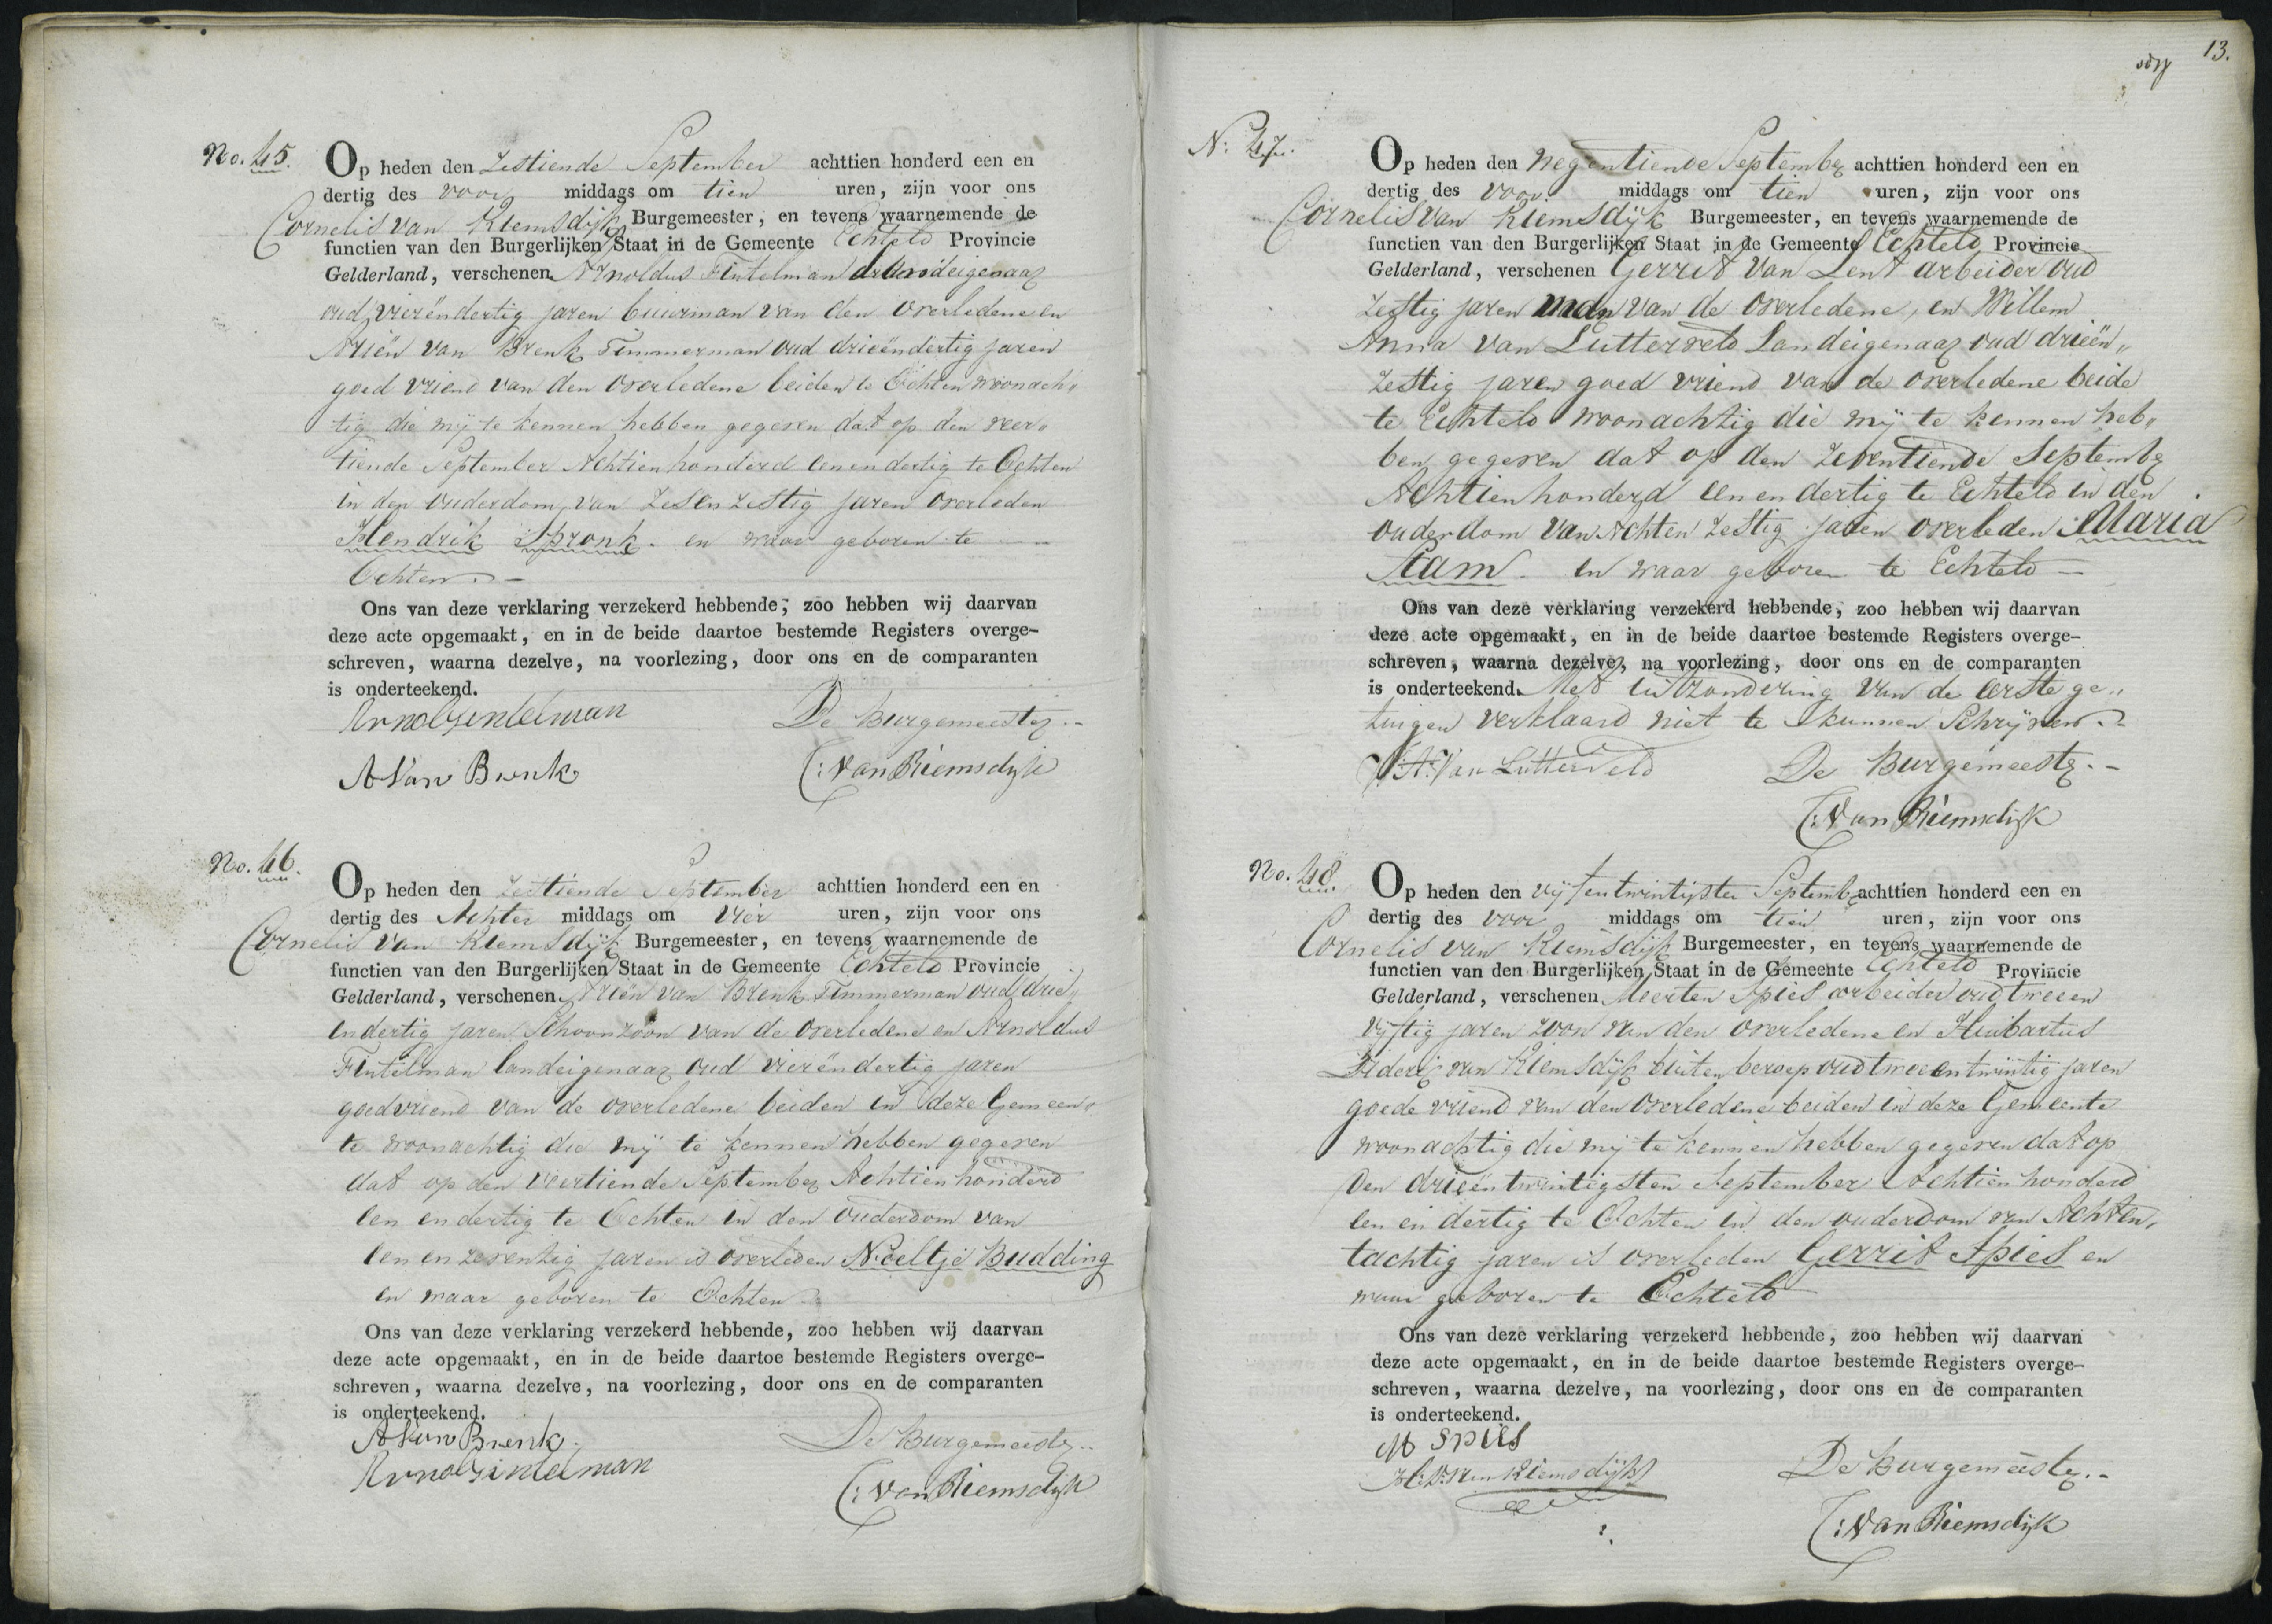 No. 45.
Op heden den Zestiende September achttien honderd een en
dertig des voor middags om tien uren, zijn voor ons
Cornelis van Riemsdijk Burgemeester, en tevens waarnemende de
functien van den Burgerlijken Staat in de Gemeente Echteld Provincie
Gelderland, verschenen Arnoldus Fintelman landeigenaar
oud vierëndertig jaren buurman van den overledene en
Ariën van Brenk Timmerman oud drieëndertig jaren
goed vriend van den overledene beiden te Ochten woonach„
tig die mij te kennen hebben gegeven dat op den veer„
tiende September Achtienhonderd eenendertig te Ochten
in den ouderdom van Zesen zestig jaren overleden
Hendrik Spronk. en waar geboren te
Ochten.
Ons van deze verklaring verzekerd hebbende, zoo hebben wij daarvan
deze acte opgemaakt, en in de beide daartoe bestemde Registers overge-
schreven, waarna dezelve, na voorlezing, door ons en de comparanten
is onderteekend.
Arnol Fintelman De Burgemeester.
A Van Brenk C: Van Riemsdijk
No. 46.
Op heden den zestiende September achttien honderd een en
dertig des Achter middags om vier uren, zijn voor ons
Cornelis van Riemsdijk Burgemeester, en tevens waarnemende de
functien van den Burgerlijken Staat in de Gemeente Echteld Provincie
Gelderland, verschenen Ariën van Brenk Timmerman oud drie„
endertig jaren Schoonzoon van de overledene en Arnoldus
Fintelman landeigenaar oud vierëndertig jaren
goedvriend van de overledene beiden in deze Gemeen„
te woonachtig die mij te kennen hebben gegeven
dat op den veertiende September Achtienhonderd
een endertig te Ochten in den ouderdom van
een en zeventig jaren is overleden Neeltje Budding
en waar geboren te Ochten
Ons van deze verklaring verzekerd hebbende, zoo hebben wij daarvan
deze acte opgemaakt, en in de beide daartoe bestemde Registers overge-
schreven, waarna dezelve, na voorlezing, door ons en de comparanten
is onderteekend.
A Van Brenk. De Burgemeester..
Arnol Fintelman C: Van Riemsdijk
13.
N: 47.
Op heden den Negentiende September achttien honderd een en
dertig des voor middags om tien uren, zijn voor ons
Cornelis van Riemsdijk Burgemeester, en tevens waarnemende de
functien van den Burgerlijken Staat in de Gemeente Echteld Provincie
Gelderland, verschenen Gerrit van Lent arbeider oud
Zestig jaren man van de overledene, en Willem
Anna van Lutterveld Landeigenaar oud drieën„
zestig jaren goed vriend van de overledene beide
te Echteld woonachtig die mij te kennen heb„
ben gegeven dat op den zeventiende September
Achtienhonderd een en dertig te Echteld in den
ouderdom van Achten zestig jaren overleden Maria
Stam. en waar geboren te Echteld
Ons van deze verklaring verzekerd hebbende, zoo hebben wij daarvan
deze acte opgemaakt, en in de beide daartoe bestemde Registers overge-
schreven, waarna dezelve, na voorlezing, door ons en de comparanten
is onderteekend. Met uitzondering van de eerste ge„
tuigen verklaard niet te kunnen Schrijven.
W:A: Van Lutterveld De Burgemeester.
C: Van Riemsdijk
No. 48.
Op heden den vijfentwintigsten September achttien honderd een en
dertig des voor middags om tien uren, zijn voor ons
Cornelis van Riemsdijk Burgemeester, en tevens waarnemende de
functien van den Burgerlijken Staat in de Gemeente Echteld Provincie
Gelderland, verschenen Meerten Spies arbeider oud tweeen
vijftig jaren zoon van den overledene en Huibartus
Diderik van Riemsdijk buiten beroep oud tweeentwintig jaren
goede vriend van den overledene beiden in deze Gemeente
woonachtig die mij te kennen hebben gegeven dat op
Den drieëntwintigsten September Achtienhonderd
een en dertig te Ochten in den ouderdom van Achten„
tachtig jaren is overleden Gerrit Spies en
waar geboren te Echteld
Ons van deze verklaring verzekerd hebbende, zoo hebben wij daarvan
deze acte opgemaakt, en in de beide daartoe bestemde Registers overge-
schreven, waarna dezelve, na voorlezing, door ons en de comparanten
is onderteekend.
M Spies
H: D: van Riemsdijk De Burgemeester.
C: Van Riemsdijk